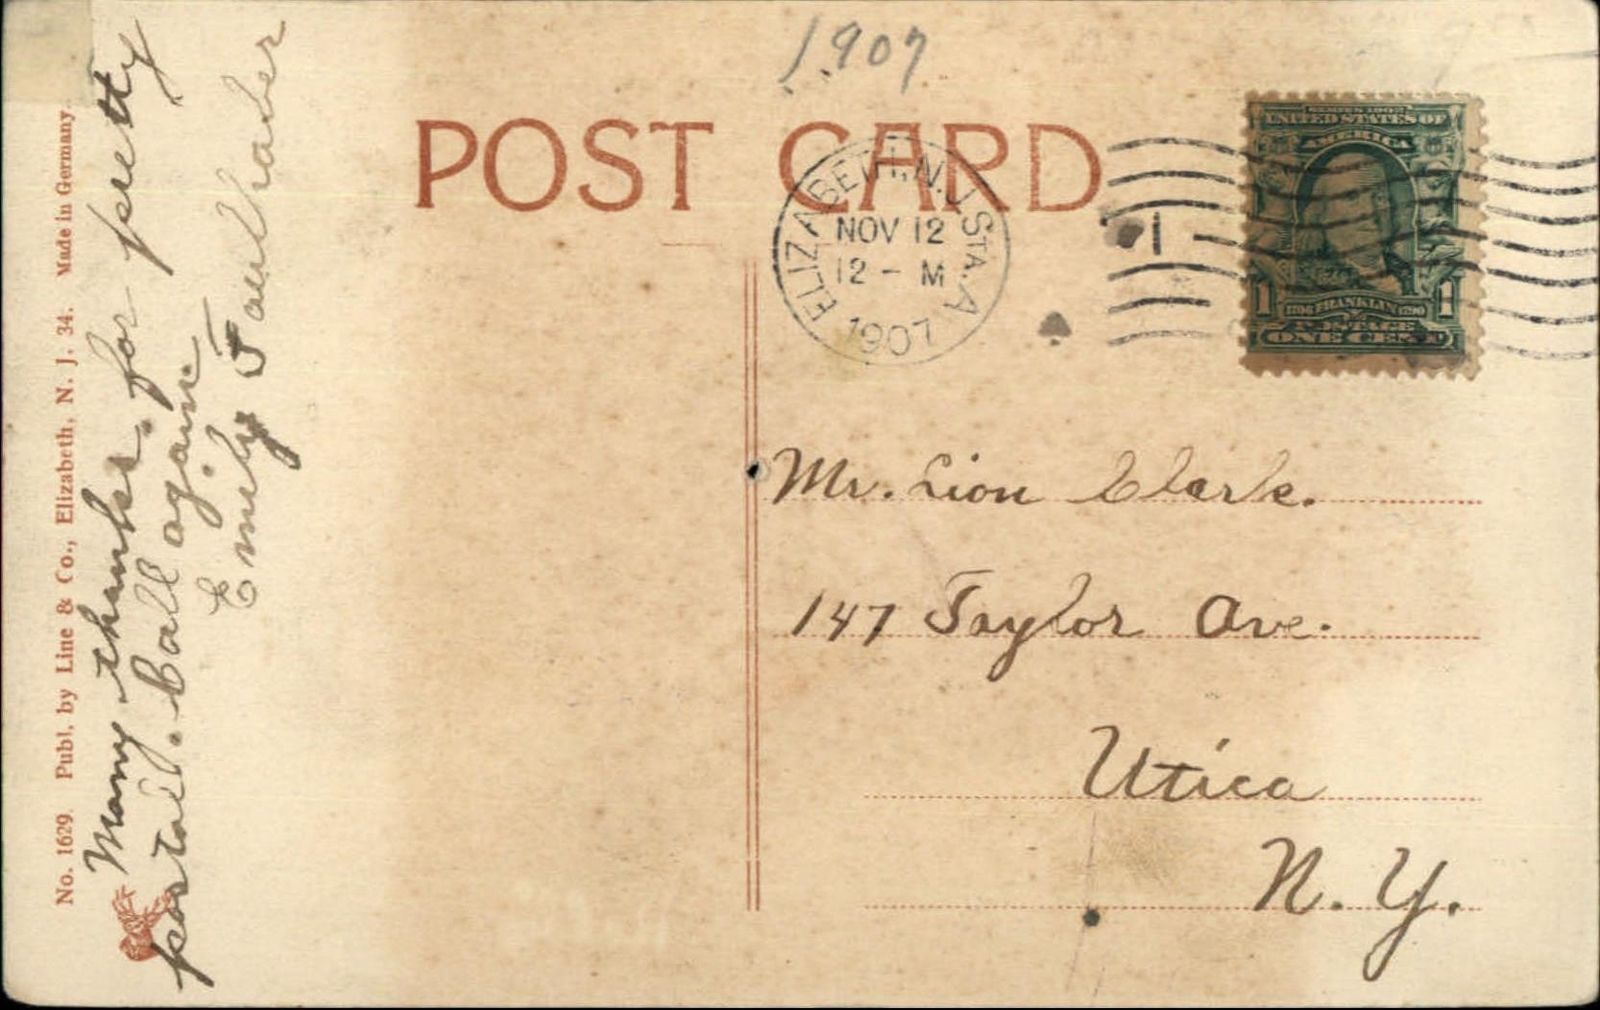 1907
POST CARD
ELIZABETH, N.J. STA. A
NOV 12
12 - M
1907
1
SERIES 1902
UNITED STATES OF
AMERICA
1 1706 FRANKLIN 1790 1
POSTAGE
ONE CENT
Mr. Lion Clark.
147 Taylor Ave.
Utica
N. Y.
No. 1629. Publ. by Line & Co., Elizabeth, N. J. 34. Made in Germany.
Many thanks for pretty
postall. Call again
Emily Faulhaber